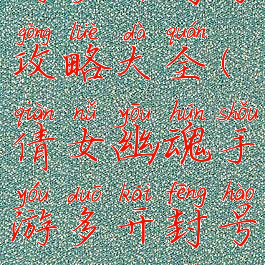 gōng lüè dà quán
攻略大全(
qiàn nǚ yōu hún shǒu
倩女幽魂手
yóu duō kāi fēng hào
游多开封号